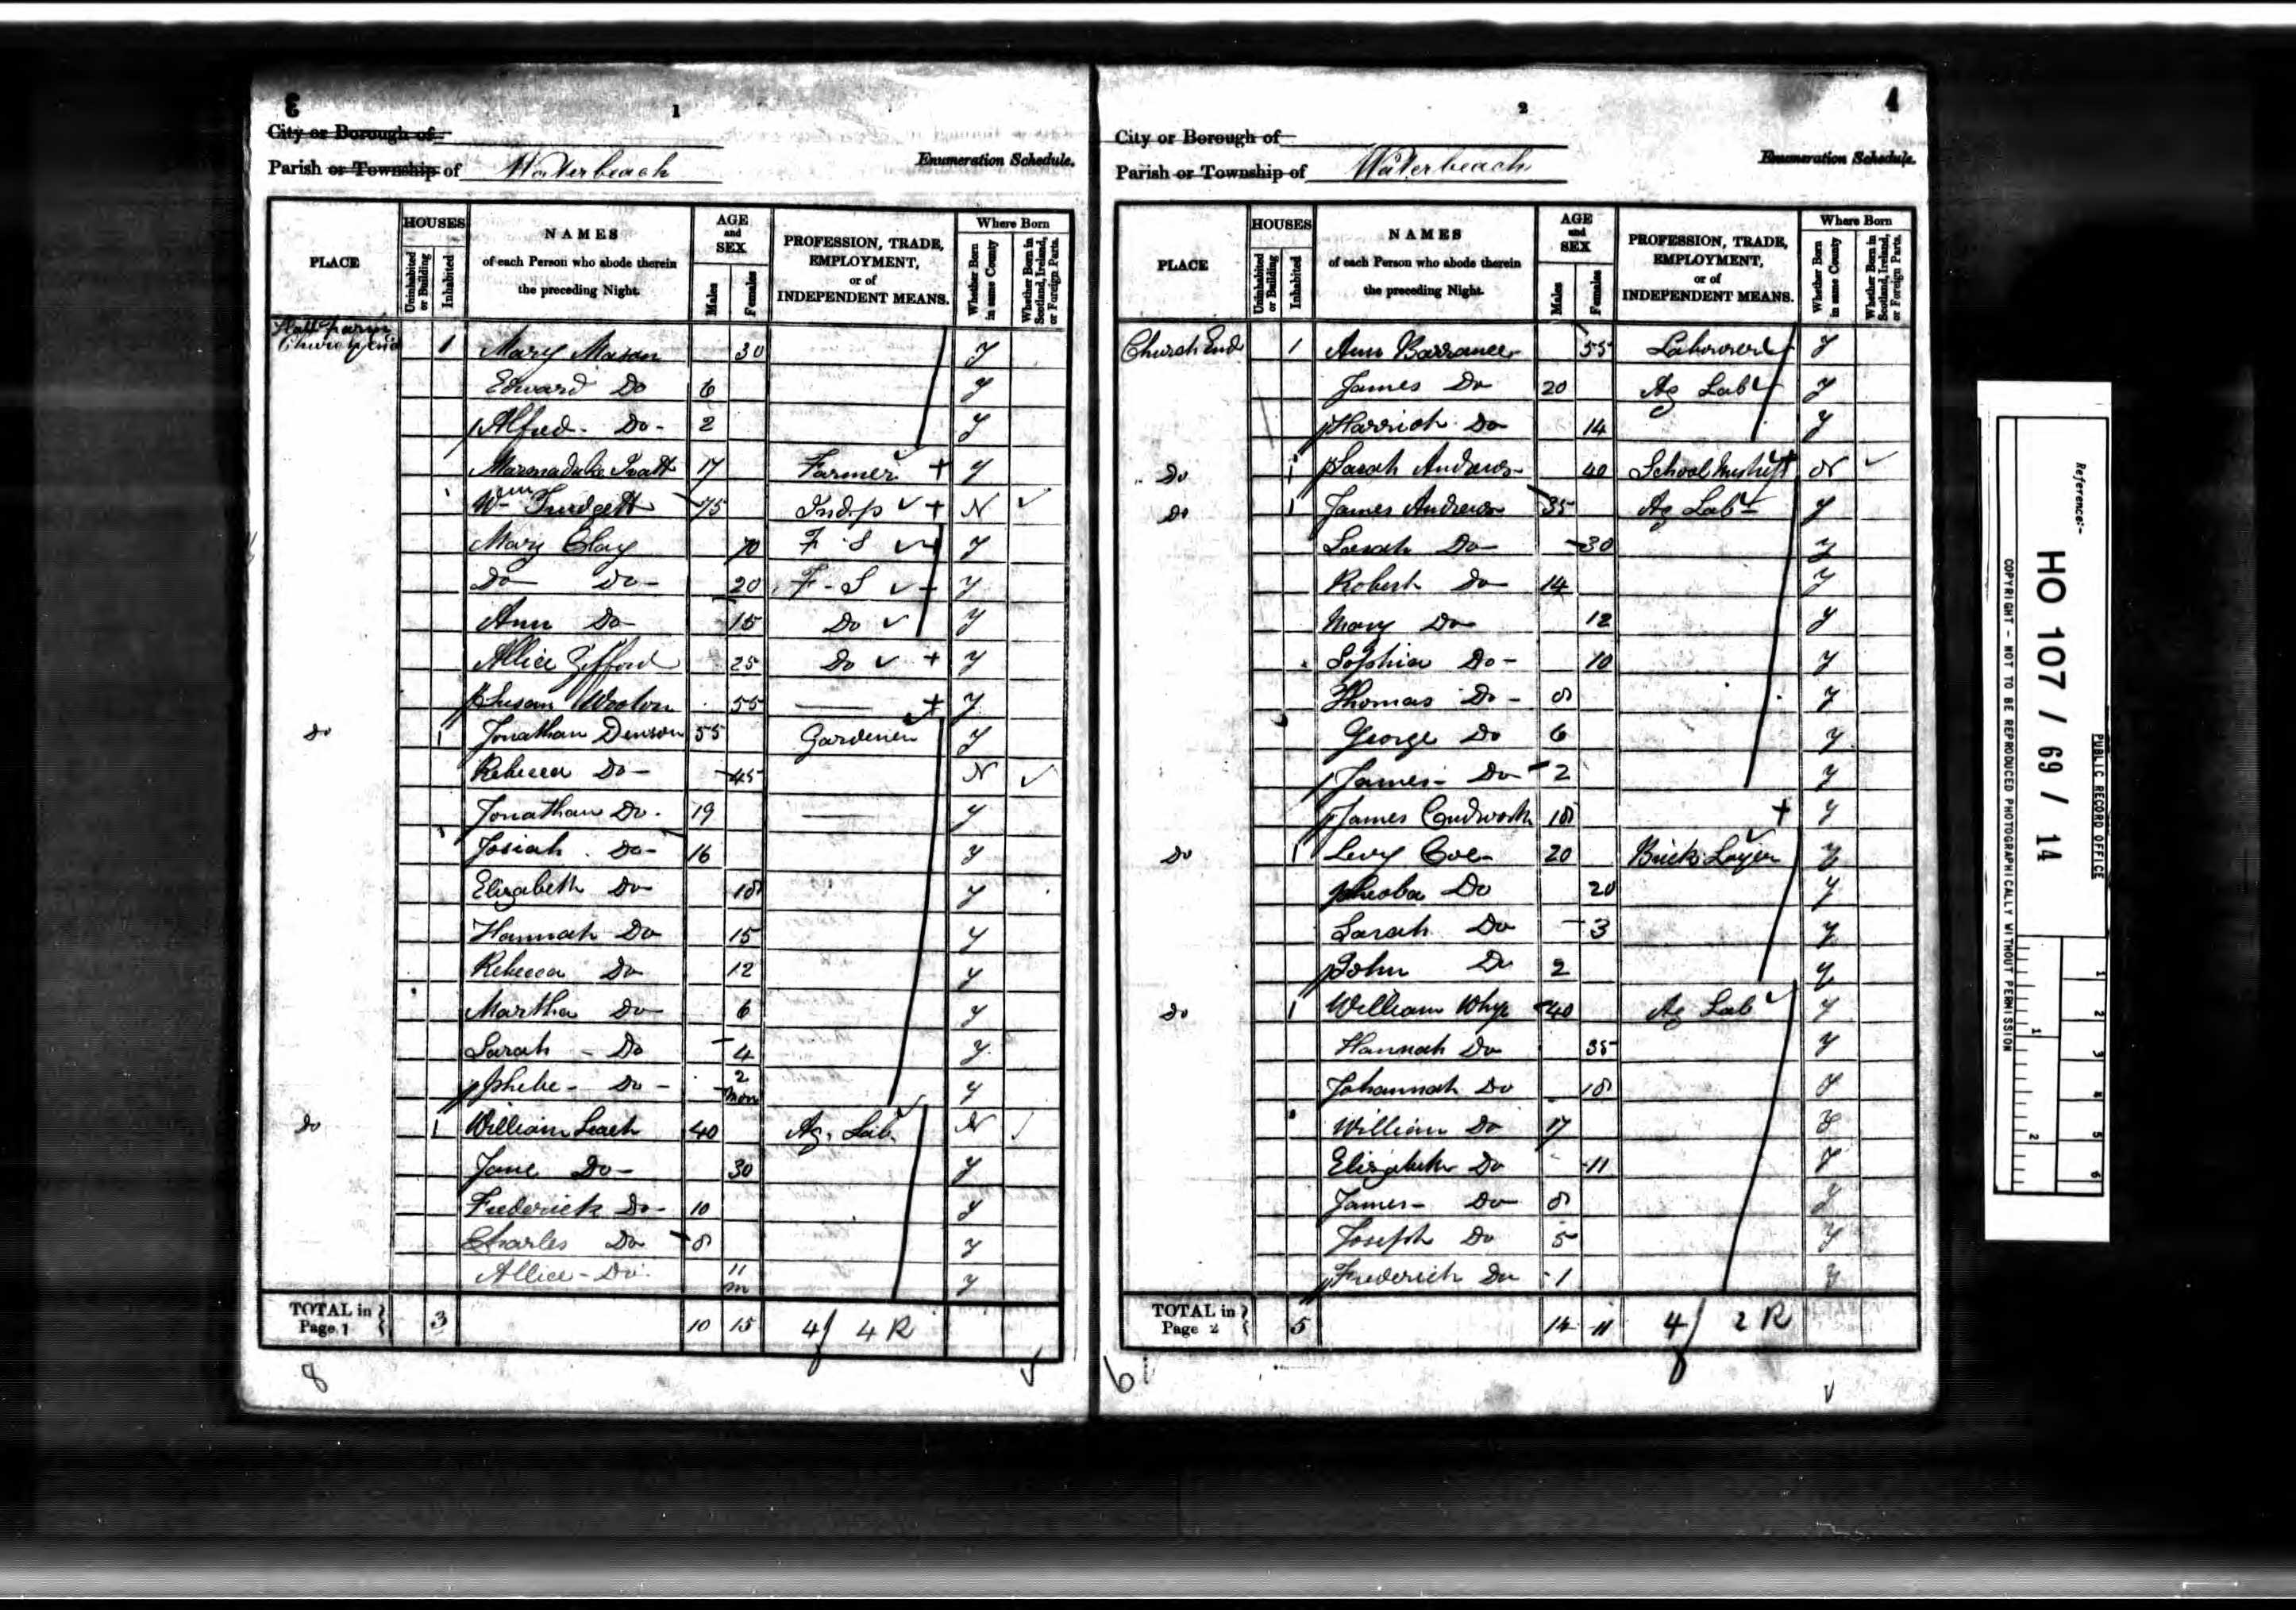 3
1
City or Borough of
Parish or Township of Waterbeach
Enumeration Schedule.
PLACE
HOUSES
Uninhabited or Building
Inhabited
NAMES
of each Person who abode therein
the preceding Night.
AGE
and
SEX
Males
Females
PROFESSION, TRADE,
EMPLOYMENT,
or of
INDEPENDENT MEANS.
Where Born
Whether Born in same County
Whether Born in Scotland, Ireland, or Foreign Parts.
Hall Farm
Church End 1 Mary Mason 30 Y
Edward Do 6 Y
Alfred - Do - 2 Y
Marmaduke 17 Farmer + Y
Wm 75 Indep + N
Mary Clay 70 F S Y
Do Do - 20 F - S Y
Ann Do 15 Do Y
Allice Gifford 25 Do + Y
Susan 55 + Y
Do 1 Jonathan Denson 55 Gardener Y
Rebecca Do - 45 N
Jonathan Do. 19 Y
Josiah Do - 16 Y
Elizabeth Do 18 Y
Hannah Do 15 Y
Rebecca Do 12 Y
Martha Do 6 Y
Sarah - Do 4 Y
Phebe - Do - 2 mon Y
Do 1 William Leach 40 Ag. Lab. N
Jane Do - 30 Y
Frederick Do - 10 Y
Charles Do 8 Y
Allice - Do 11 m Y
TOTAL in
Page 1
3 10 15 4/ 4 R
8
2
4
City or Borough of
Parish or Township of Waterbeach
Enumeration Schedule.
PLACE
HOUSES
Uninhabited or Building
Inhabited
NAMES
of each Person who abode therein
the preceding Night.
AGE
and
SEX
Males
Females
PROFESSION, TRADE,
EMPLOYMENT,
or of
INDEPENDENT MEANS.
Where Born
Whether Born in same County
Whether Born in Scotland, Ireland, or Foreign Parts.
Church End 1 Ann Barrance 55 Y
James Do 20 Ag Lab Y
Do 14 Y
Do 1 Sarah Andrews 40 N
Do 1 James Andrews 35 Ag Lab Y
Sarah Do 30 Y
Robert Do 14 Y
Mary Do 12 Y
Sophia Do - 10 Y
Thomas Do - 8 Y
George Do 6 Y
James - Do 2 Y
James Cudworth 18 + Y
Do 1 Levy Coe 20 Brick Layer Y
Pheoba Do 20 Y
Sarah Do 3 Y
John Do 2 Y
Do 1 William Whye 40 Ag Lab Y
Hannah Do 35 Y
Johannah Do 18 Y
William Do 17 Y
Elizabeth Do 11 Y
James - Do 8 Y
Joseph Do 5 Y
Frederick Do 1 Y
TOTAL in
Page 2
5 14 11 4/ 2 R
6
Reference:-
HO 107 / 69 / 14
PUBLIC RECORD OFFICE
COPYRIGHT - NOT TO BE REPRODUCED PHOTOGRAPHICALLY WITHOUT PERMISSION
1 2 3 4 5 6
1 2